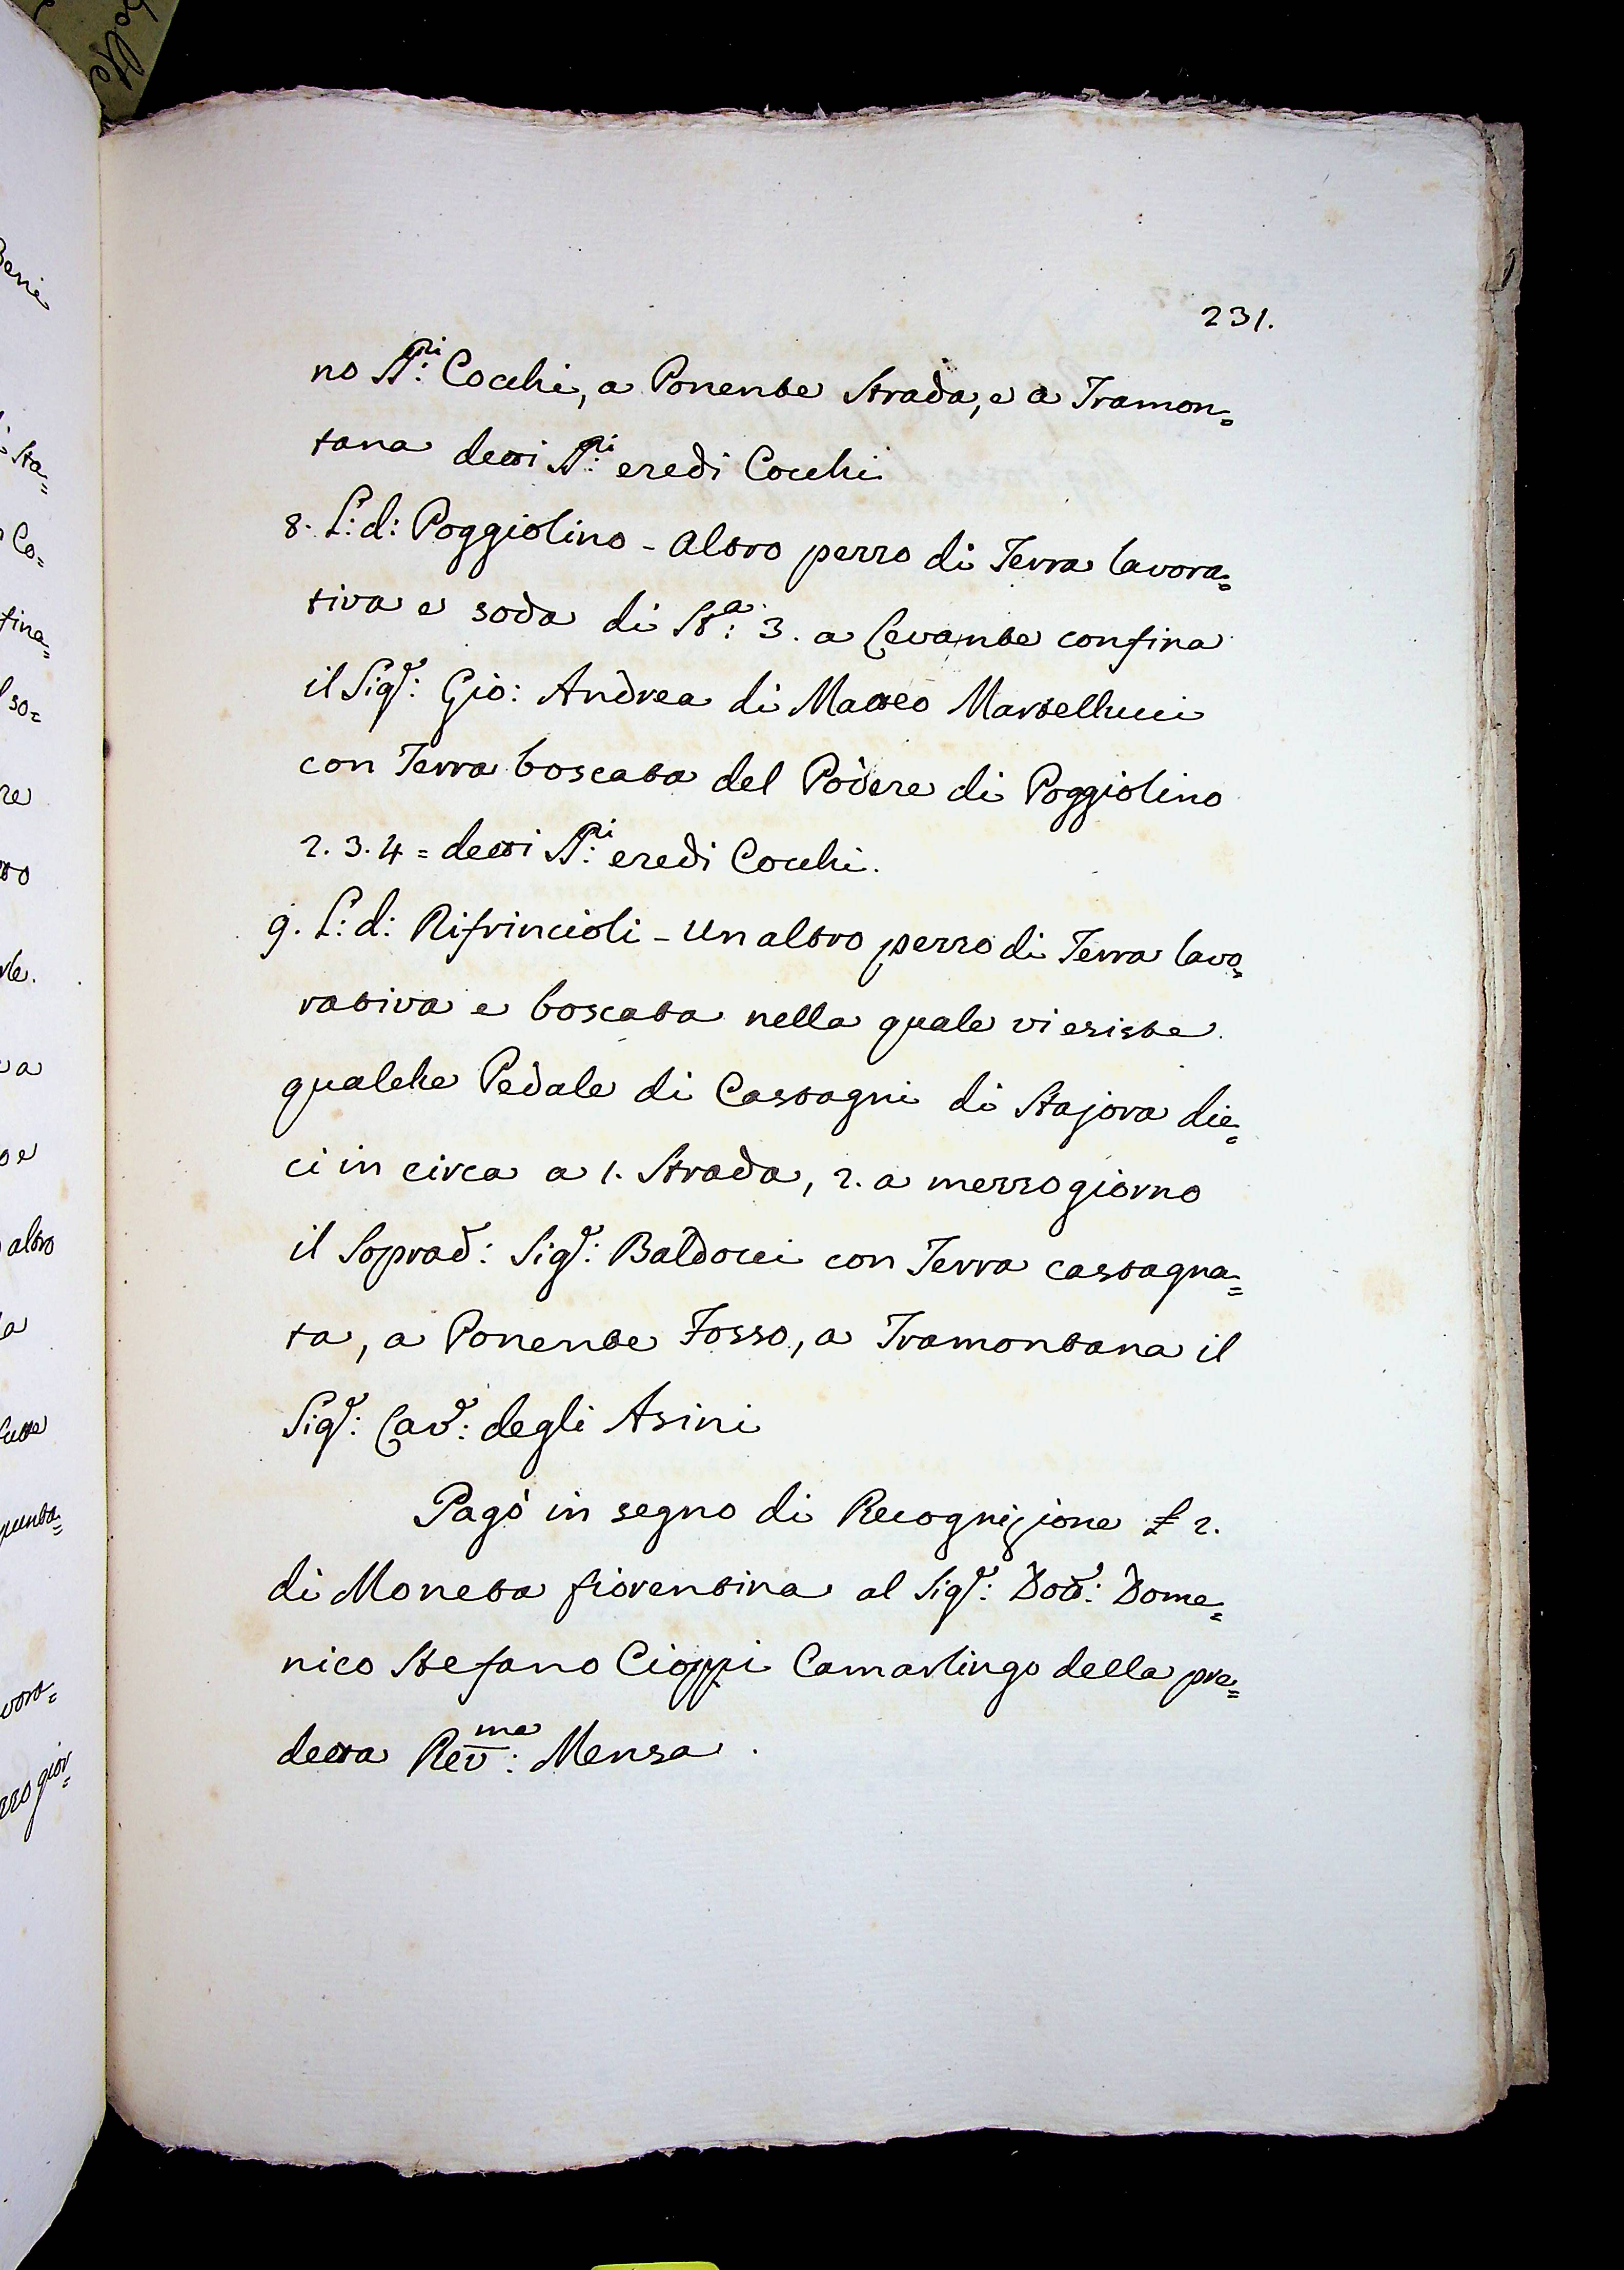 231.
no SS:ri Cocchi, a Ponente Strada, e a Tramon=
tana detti SS:ri eredi Cocchi
8. L: d: Poggiolino - Altro pezzo di Terra lavora=
tiva e soda di St:a 3. a Levante confina
il Sig:r Gio: Andrea di Matteo Martellucci
con Terra boscata del Podere di Poggiolino
2. 3. 4 = detti SS:ri eredi Cocchi.
9. L: d: Rifrincioli - Un altro pezzo di Terra lavo=
rativa e boscata nella quale vi esiste
qualche Pedale di Castagni di Stajora die=
ci in circa a 1. Strada, 2. a mezzogiorno
il Soprad: Sig:r Baldocci con Terra castagna=
ta, a Ponente Fosso, a Tramontana il
Sig:r Cav:r degli Asini
Pagò in segno di Recognizione £ 2.
di Moneta fiorentina al Sig:r Dott:r Dome=
nico Stefano Cioppi Camarlingo della pre=
detta Rev:ma Mensa.
Beni
Sta=
Co=
fina=
so=
re
va
altro
punta=
vora=
zzo gior=